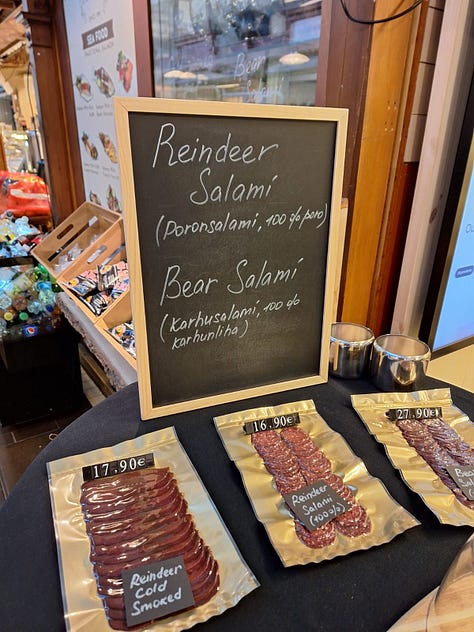 SEA FOOD
Bear
Salami
Reindeer
Salami
(Poronsalami, 100% poro)
Bear Salami
(Karhusalami, 100%
karhunliha)
17.90€
16.90€
27.90€
Reindeer
Salami
(100%)
Reindeer
Cold
Smoked